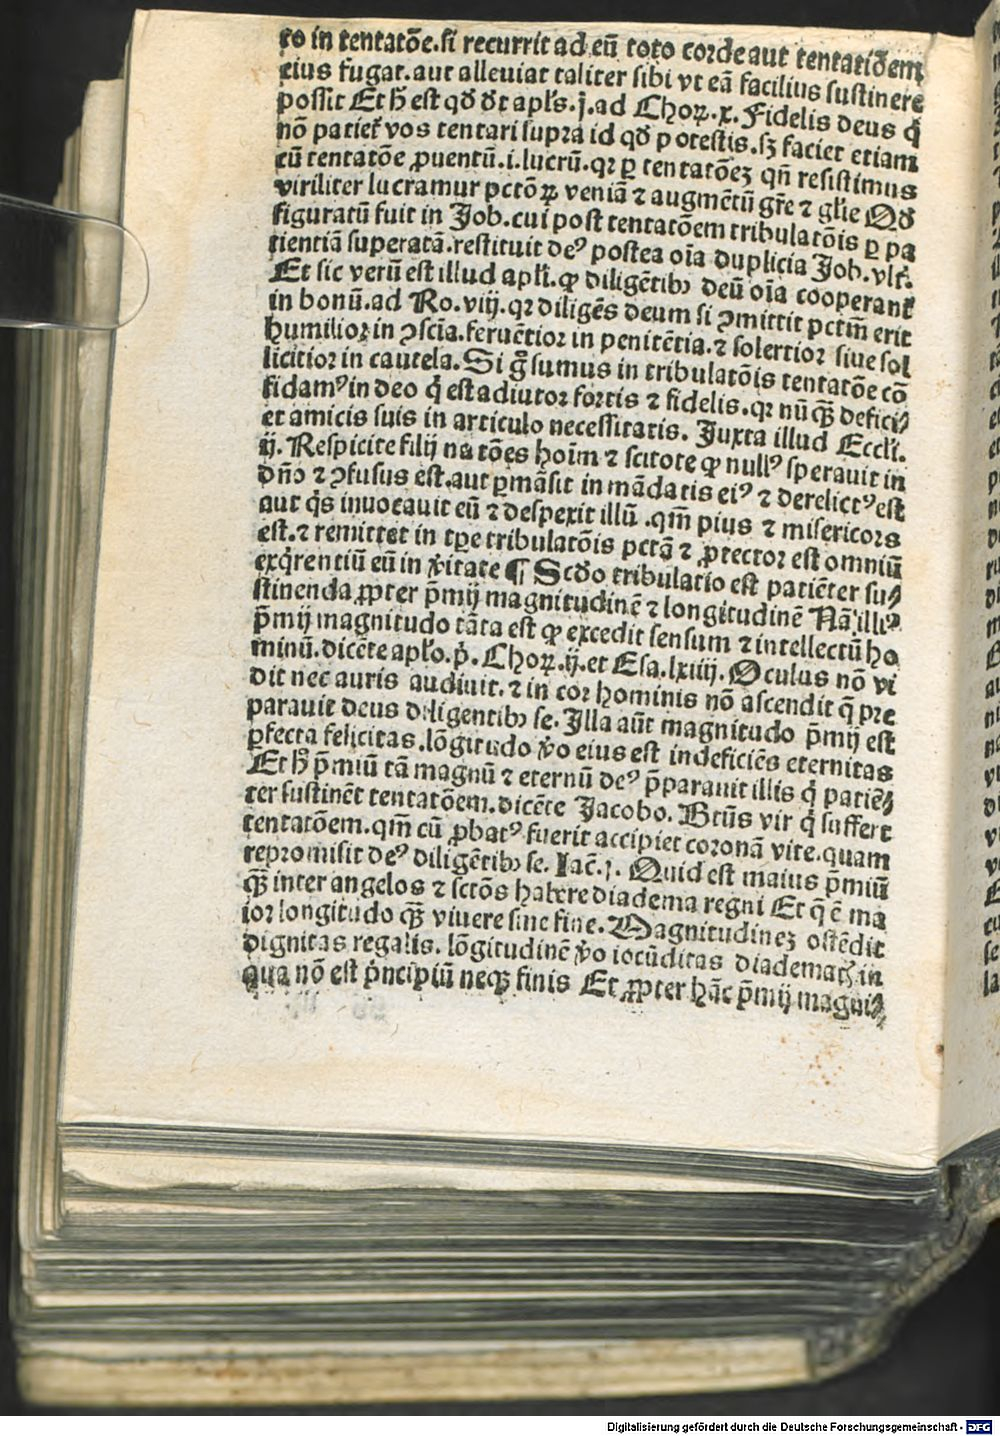 to in tentatōe.si recurrit ad eū toto corde aut tentatiōem
eius fugat.aut alleuiat taliter sibi vt eā facilius sustinere
possit Et h̄ est qd̄ dt̄ apl's.j.ad Choꝝ.x.Fidelis deus q̇
nō patiet᷑ vos tentari supra id qd̄ potestis.sꝫ faciet etiam
cū tentatōe ꝓuentū.i.lucrū.qꝛ ꝑ tentatōeꝫ qn̄ resistimus
viriliter lucramur pctōꝝ veniā ⁊ augmētū gr̄e ⁊ gl'ie Qd̄
figuratū fuit in Job.cui post tentatōem tribulatōis ꝑ pa
tientiā superatā.restituit deꝰ postea oīa duplicia Job.vlt᷑.
Et sic verū est illud apl'i.ꝙ diligētibꝫ deū oīa cooperant᷑
in bonū.ad Ro.viij.qꝛ diligēs deum si ꝯmittit pctm̄ erit
humilior in ꝯsciā.feruētior in penitētia.⁊ solertior siue sol
licitior in cautela.Si g̊ sumus in tribulatōis tentatōe cō
fidamꝰ in deo q̇ est adiutor fortis ⁊ fidelis.qꝛ nūꝙ̄ defici⸗
et amicis suis in articulo necessitatis. Juxta illud Eccl'i.
ij. Respicite filij natōes hoīm ⁊ scitote ꝙ nullꝰ sperauit in
dn̄o ⁊ ꝯfusus est.aut ꝑmāsit in mādatis eiꝰ ⁊ derelictꝰ est
aut q̇s inuocauit eū ⁊ despexit illū .qm̄ pius ⁊ misericors
est.⁊ remittet in tꝑe tribulatōis pctā ⁊ ꝓtector est omniū
exq̇rentiū eū in v̓itate ¶ Scd̄o tribulatio est patiēter su⸗
stinenda ꝓpter p̄mij magnitudinē ⁊ longitudinē Nā illiꝰ
p̄mij magnitudo tāta est ꝙ excedit sensum ⁊ intellectū ho
minū.dicēte apl'o.ṗ. Choꝝ.ij.et Esa.lxiiij. Oculus nō vi
dit nec auris audiuit.⁊ in cor hominis nō ascendit q̄ pre
parauit deus diligentibꝫ se. Illa aūt magnitudo p̄mij est
ꝑfecta felicitas.lōgitudo v̓o eius est indeficiēs eternitas
Et h̄ p̄miū tā magnū ⁊ eternū deꝰ p̄parauit illis q̇ patiē⸗
ter sustinēt tentatōem.dicēte Jacobo. Btūs vir q̇ suffert
tentatōem.qm̄ cū ꝓbatꝰ fuerit accipiet coronā vite.quam
repromisit deꝰ diligētibꝫ se. Jac̄.j. Quid est maius p̄miū
ꝙ̄ inter angelos ⁊ sctōs habere diadema regni Et q̄ ē ma
ior longitudo ꝙ̄ viuere sine fine. Magnitudineꝫ ostēdit
dignitas regalis. lōgitudinē v̓o iocūditas diademat᷑ in
qua nō est p̓ncipiū neqꝫ finis Et ꝓpter hāc p̄mij magni⸗
Digitalisierung gefördert durch die Deutsche Forschungsgemeinschaft - DFG